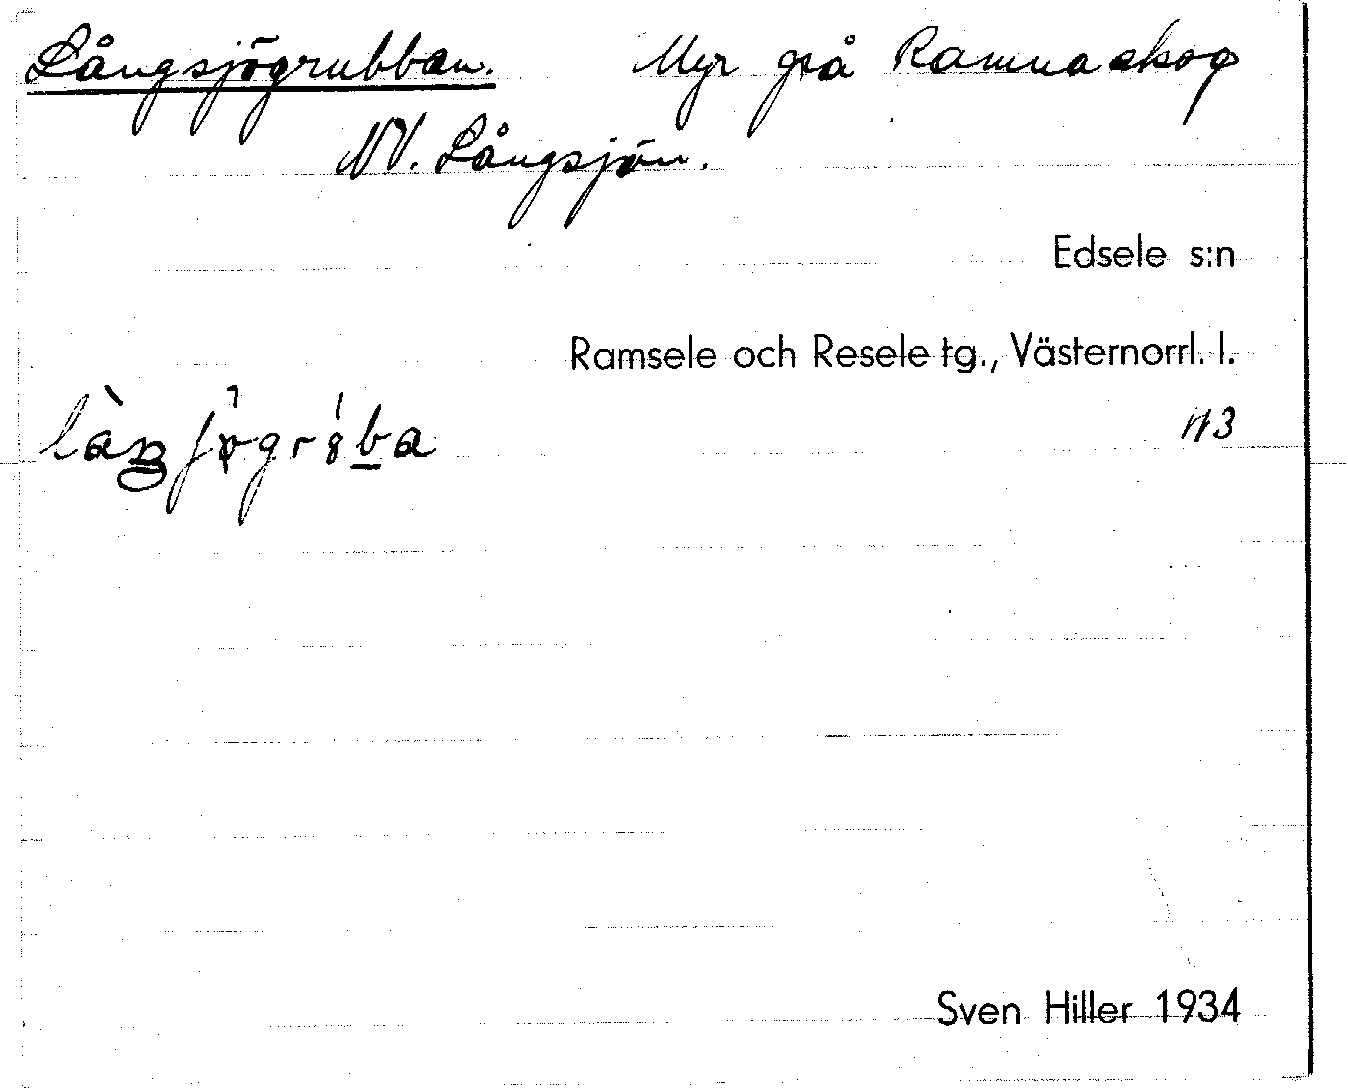 Långsjögrubban. Myr på Ramna skog
NV. Långsjön.
Edsele s:n
Ramsele och Resele tg., Västernorrl. l.
N3
Sven Hiller 1934